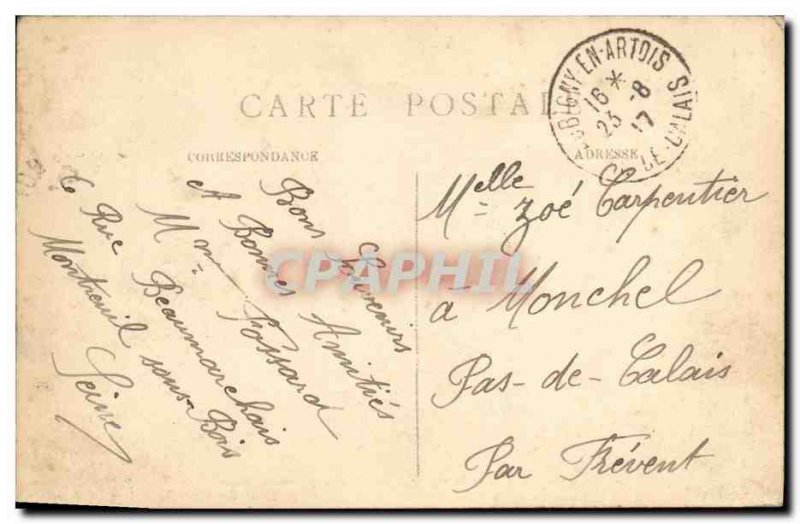 CARTE POSTALE
CORRESPONDANCE
ADRESSE
AUBIGNY-EN-ARTOIS
16 * 23 -8 17
PAS-DE-CALAIS
Bons Souvenirs
et Bonnes Amitiés
Mme Fossard
6 Rue Beaumarchais
Montreuil sous-Bois
Seine
Melle Zoé Carpentier
à Monchel
Pas-de-Calais
Par Frévent
CPAPHIL